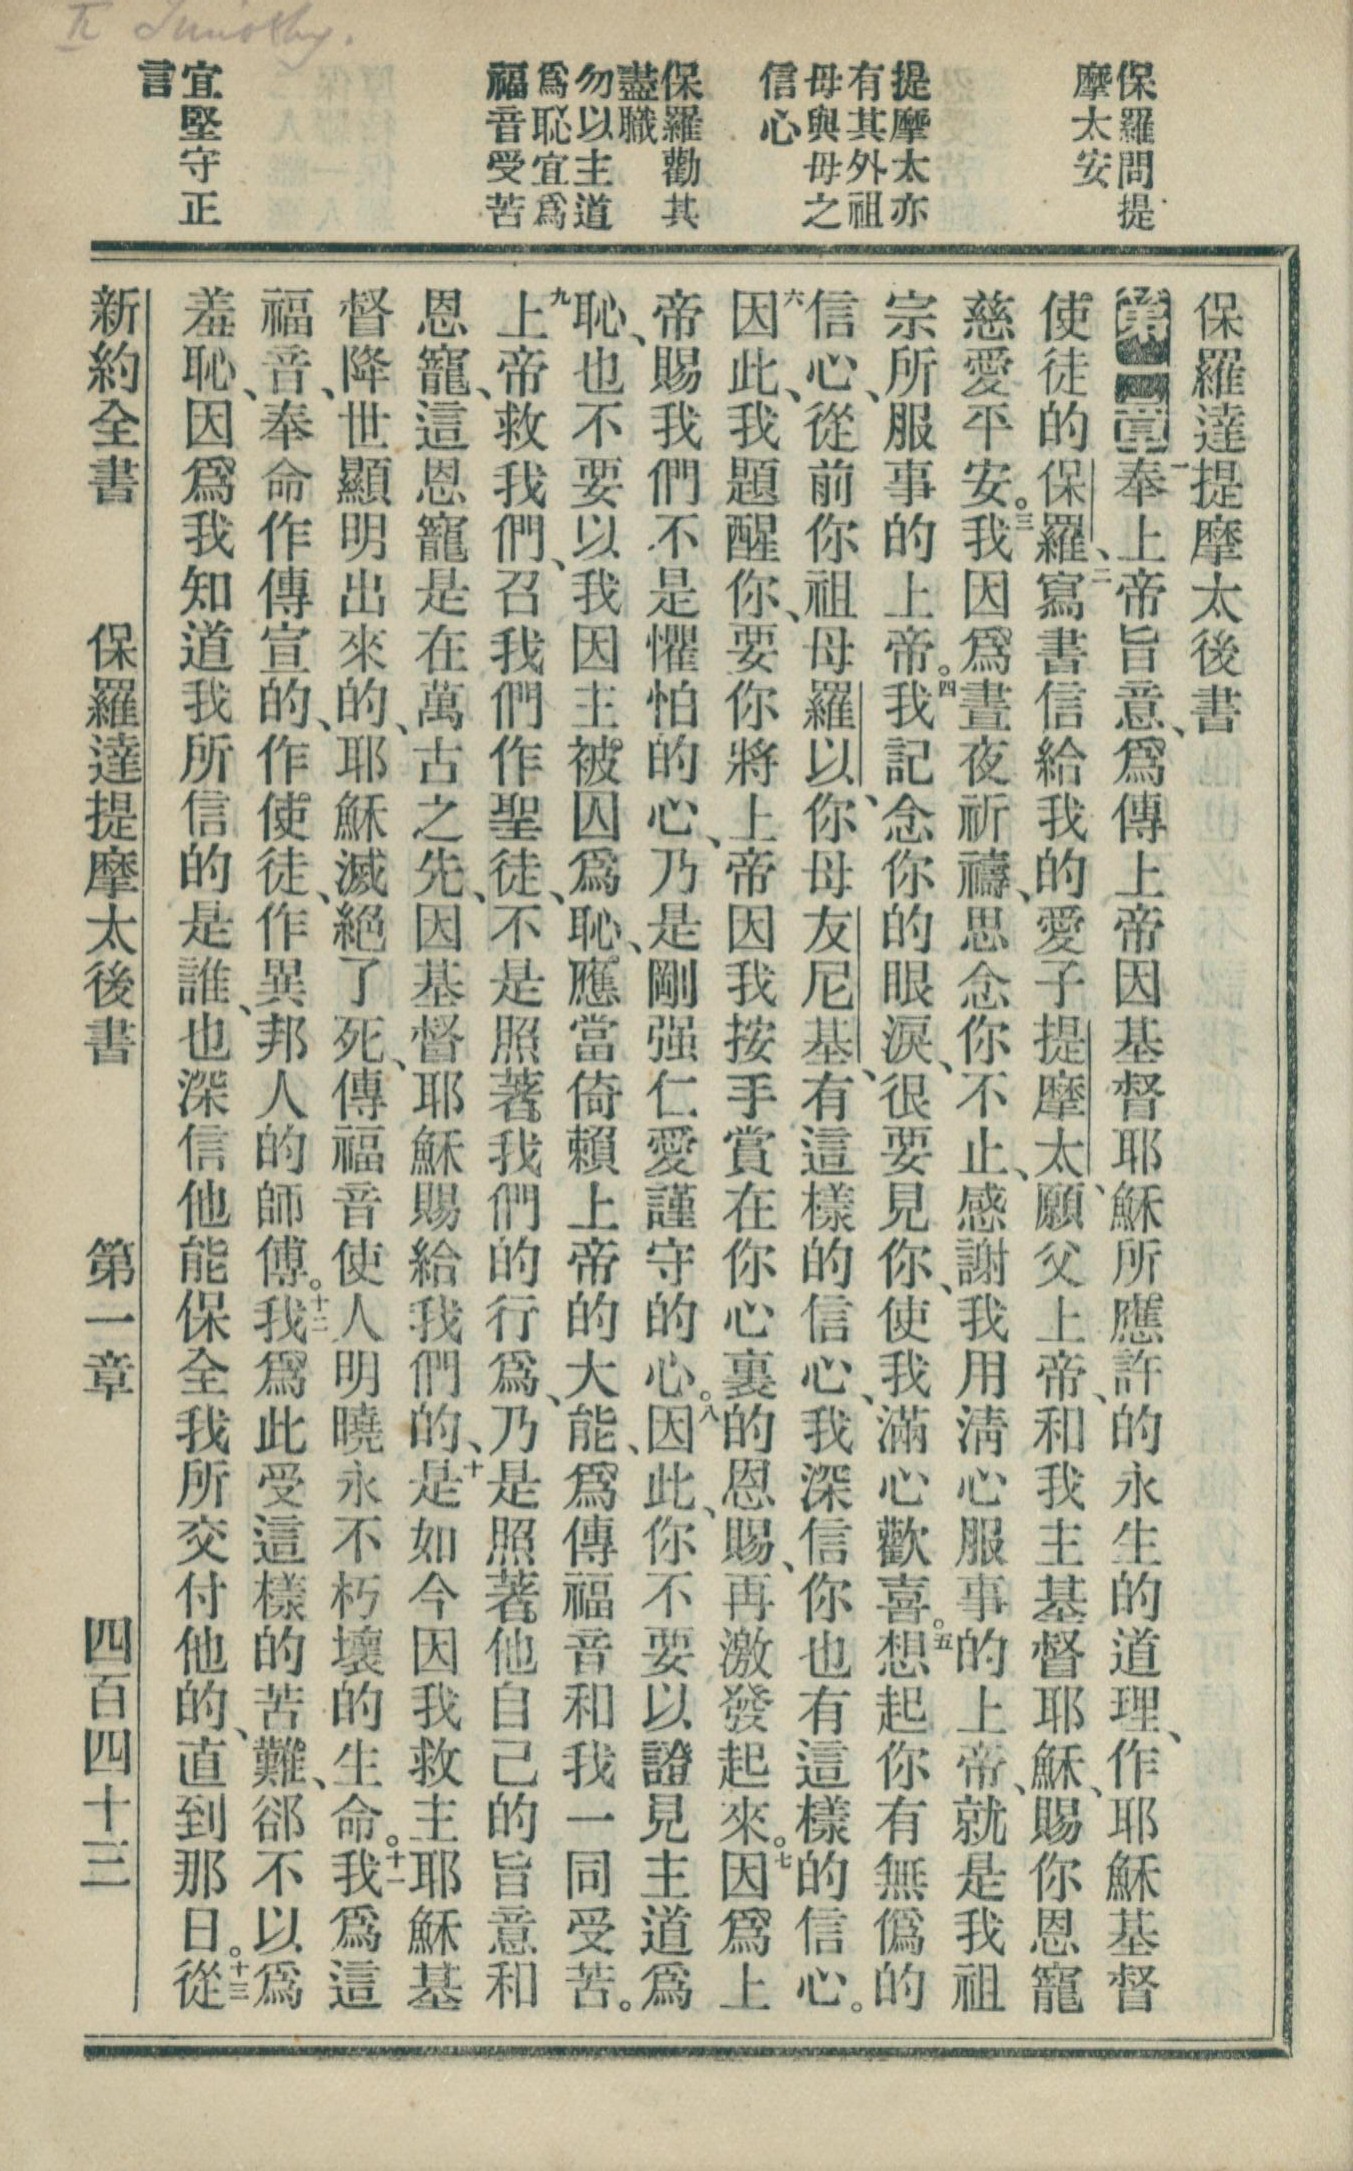 II Timothy.
保羅問提
摩太安
提摩太亦
有其外祖
母與母之
信心
保羅勸其
盡職
勿以主道
爲恥宜爲
福音受苦
宜堅守正
言
保羅達提摩太後書
第一章一奉上帝旨意、爲傳上帝因基督耶穌所應許的永生的道理、作耶穌基督
使徒的保羅、二寫書信給我的愛子提摩太、願父上帝、和我主基督耶穌、賜你恩寵
慈愛平安。三我因爲晝夜祈禱、思念你不止、感謝我用淸心服事的上帝、就是我祖
宗所服事的上帝。四我記念你的眼淚、很要見你、使我滿心歡喜。五想起你有無僞的
信心、從前你祖母羅以、你母友尼基、有這樣的信心、我深信你也有這樣的信心。
六因此、我題醒你、要你將上帝因我按手賞在你心裏的恩賜、再激發起來。七因爲上
帝賜我們不是懼怕的心、乃是剛强仁愛謹守的心。八因此、你不要以證見主道爲
恥、也不要以我因主被囚爲恥、應當倚賴上帝的大能、爲傳福音和我一同受苦。
九上帝救我們、召我們作聖徒、不是照著我們的行爲、乃是照著他自己的旨意和
恩寵、這恩寵是在萬古之先、因基督耶穌賜給我們的、十是如今因我救主耶穌基
督降世顯明出來的、耶穌滅絕了死、傳福音使人明曉永不朽壞的生命。十一我爲這
福音、奉命作傳宣的、作使徒、作異邦人的師傅。十二我爲此受這樣的苦難、郤不以爲
羞恥、因爲我知道我所信的是誰、也深信他能保全我所交付他的、直到那日。十三從
新約全書 保羅達提摩太後書 第一章 四百四十三